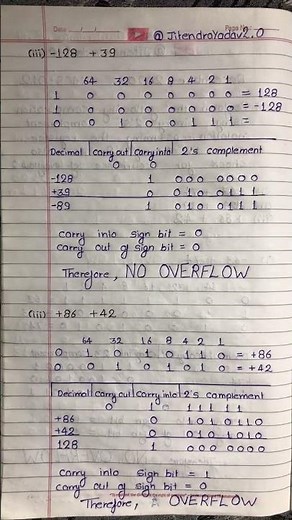 @JitendraYadav2.0
(iii) -128 +39
64 32 16 8 4 2 1
1 0 0 0 0 0 0 0 = 128
1 0 0 0 0 0 0 0 = -128
0 0 1 0 0 1 1 1 =
Decimal carry out carry into 2's complement
0 0
-128 1 000 0000
+39 0 010 0111
-89 1 010 0111
carry into sign bit = 0
carry out of sign bit = 0
Therefore, NO OVERFLOW
(iii) +86 +42
64 32 16 8 4 2 1
0 1 0 1 0 1 1 0 = +86
0 0 1 0 1 0 1 0 = +42
Decimal carry out carry into 2's complement
0 1 1 1 1 1 1
+86 0 101 0110
+42 0 010 1010
128 1 000 0000
carry into sign bit = 1
carry out of sign bit = 0
Therefore, OVERFLOW